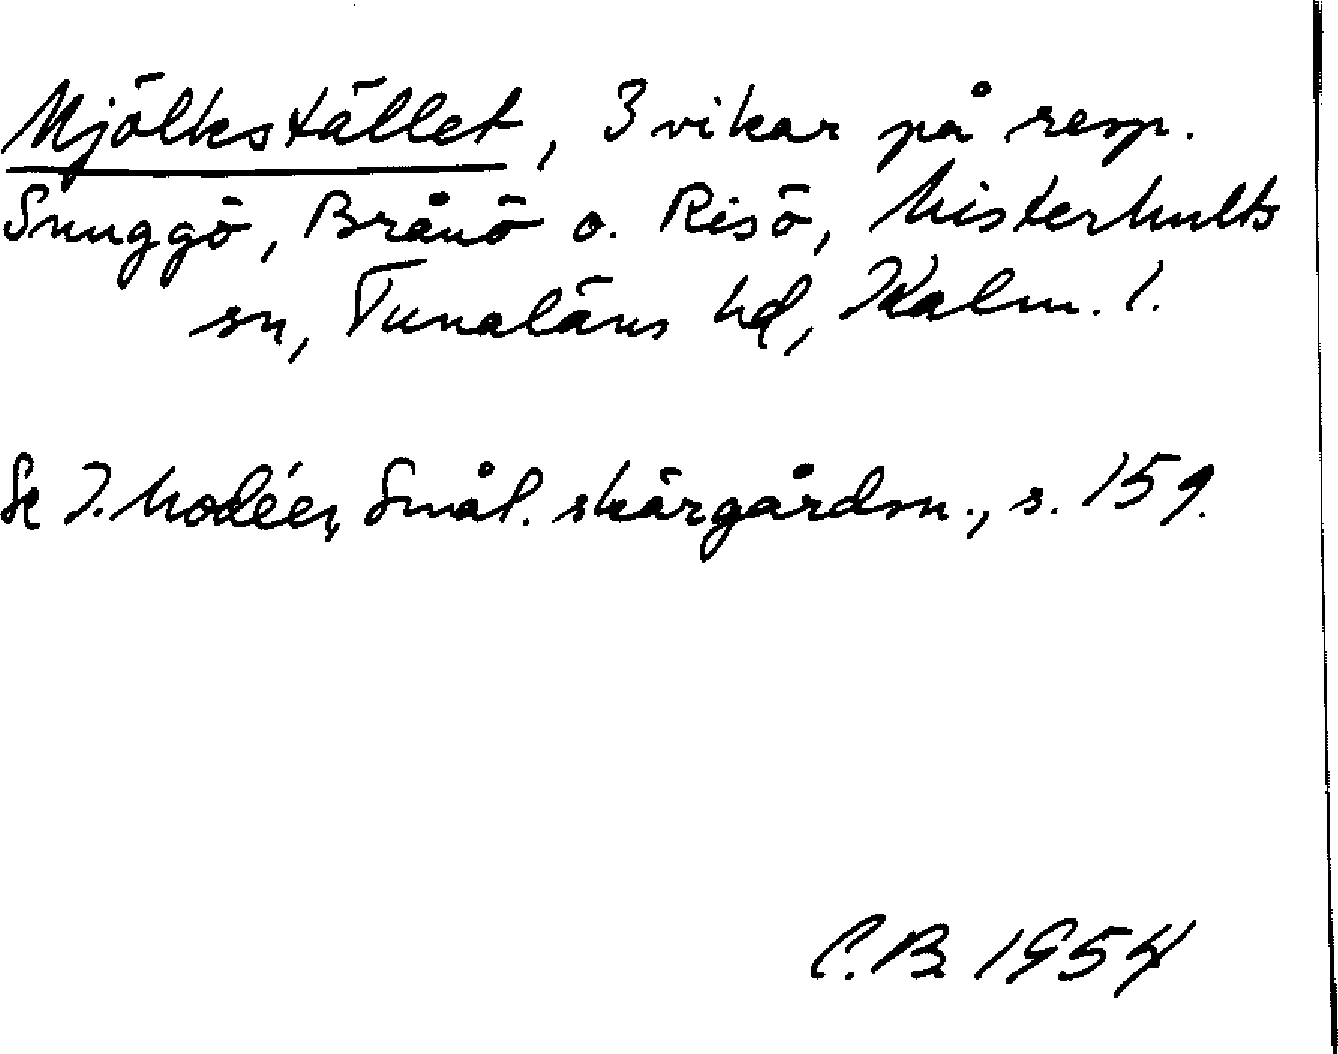 Mjölkstället, 3 vikar på resp.
Snuggö, Brånö o. Risö, Misterhults
sn, Tunaläns hd, Kalm. l.
Se I. Modéer, Smål. skärgårdsn., s. 159.
C.B. 1954